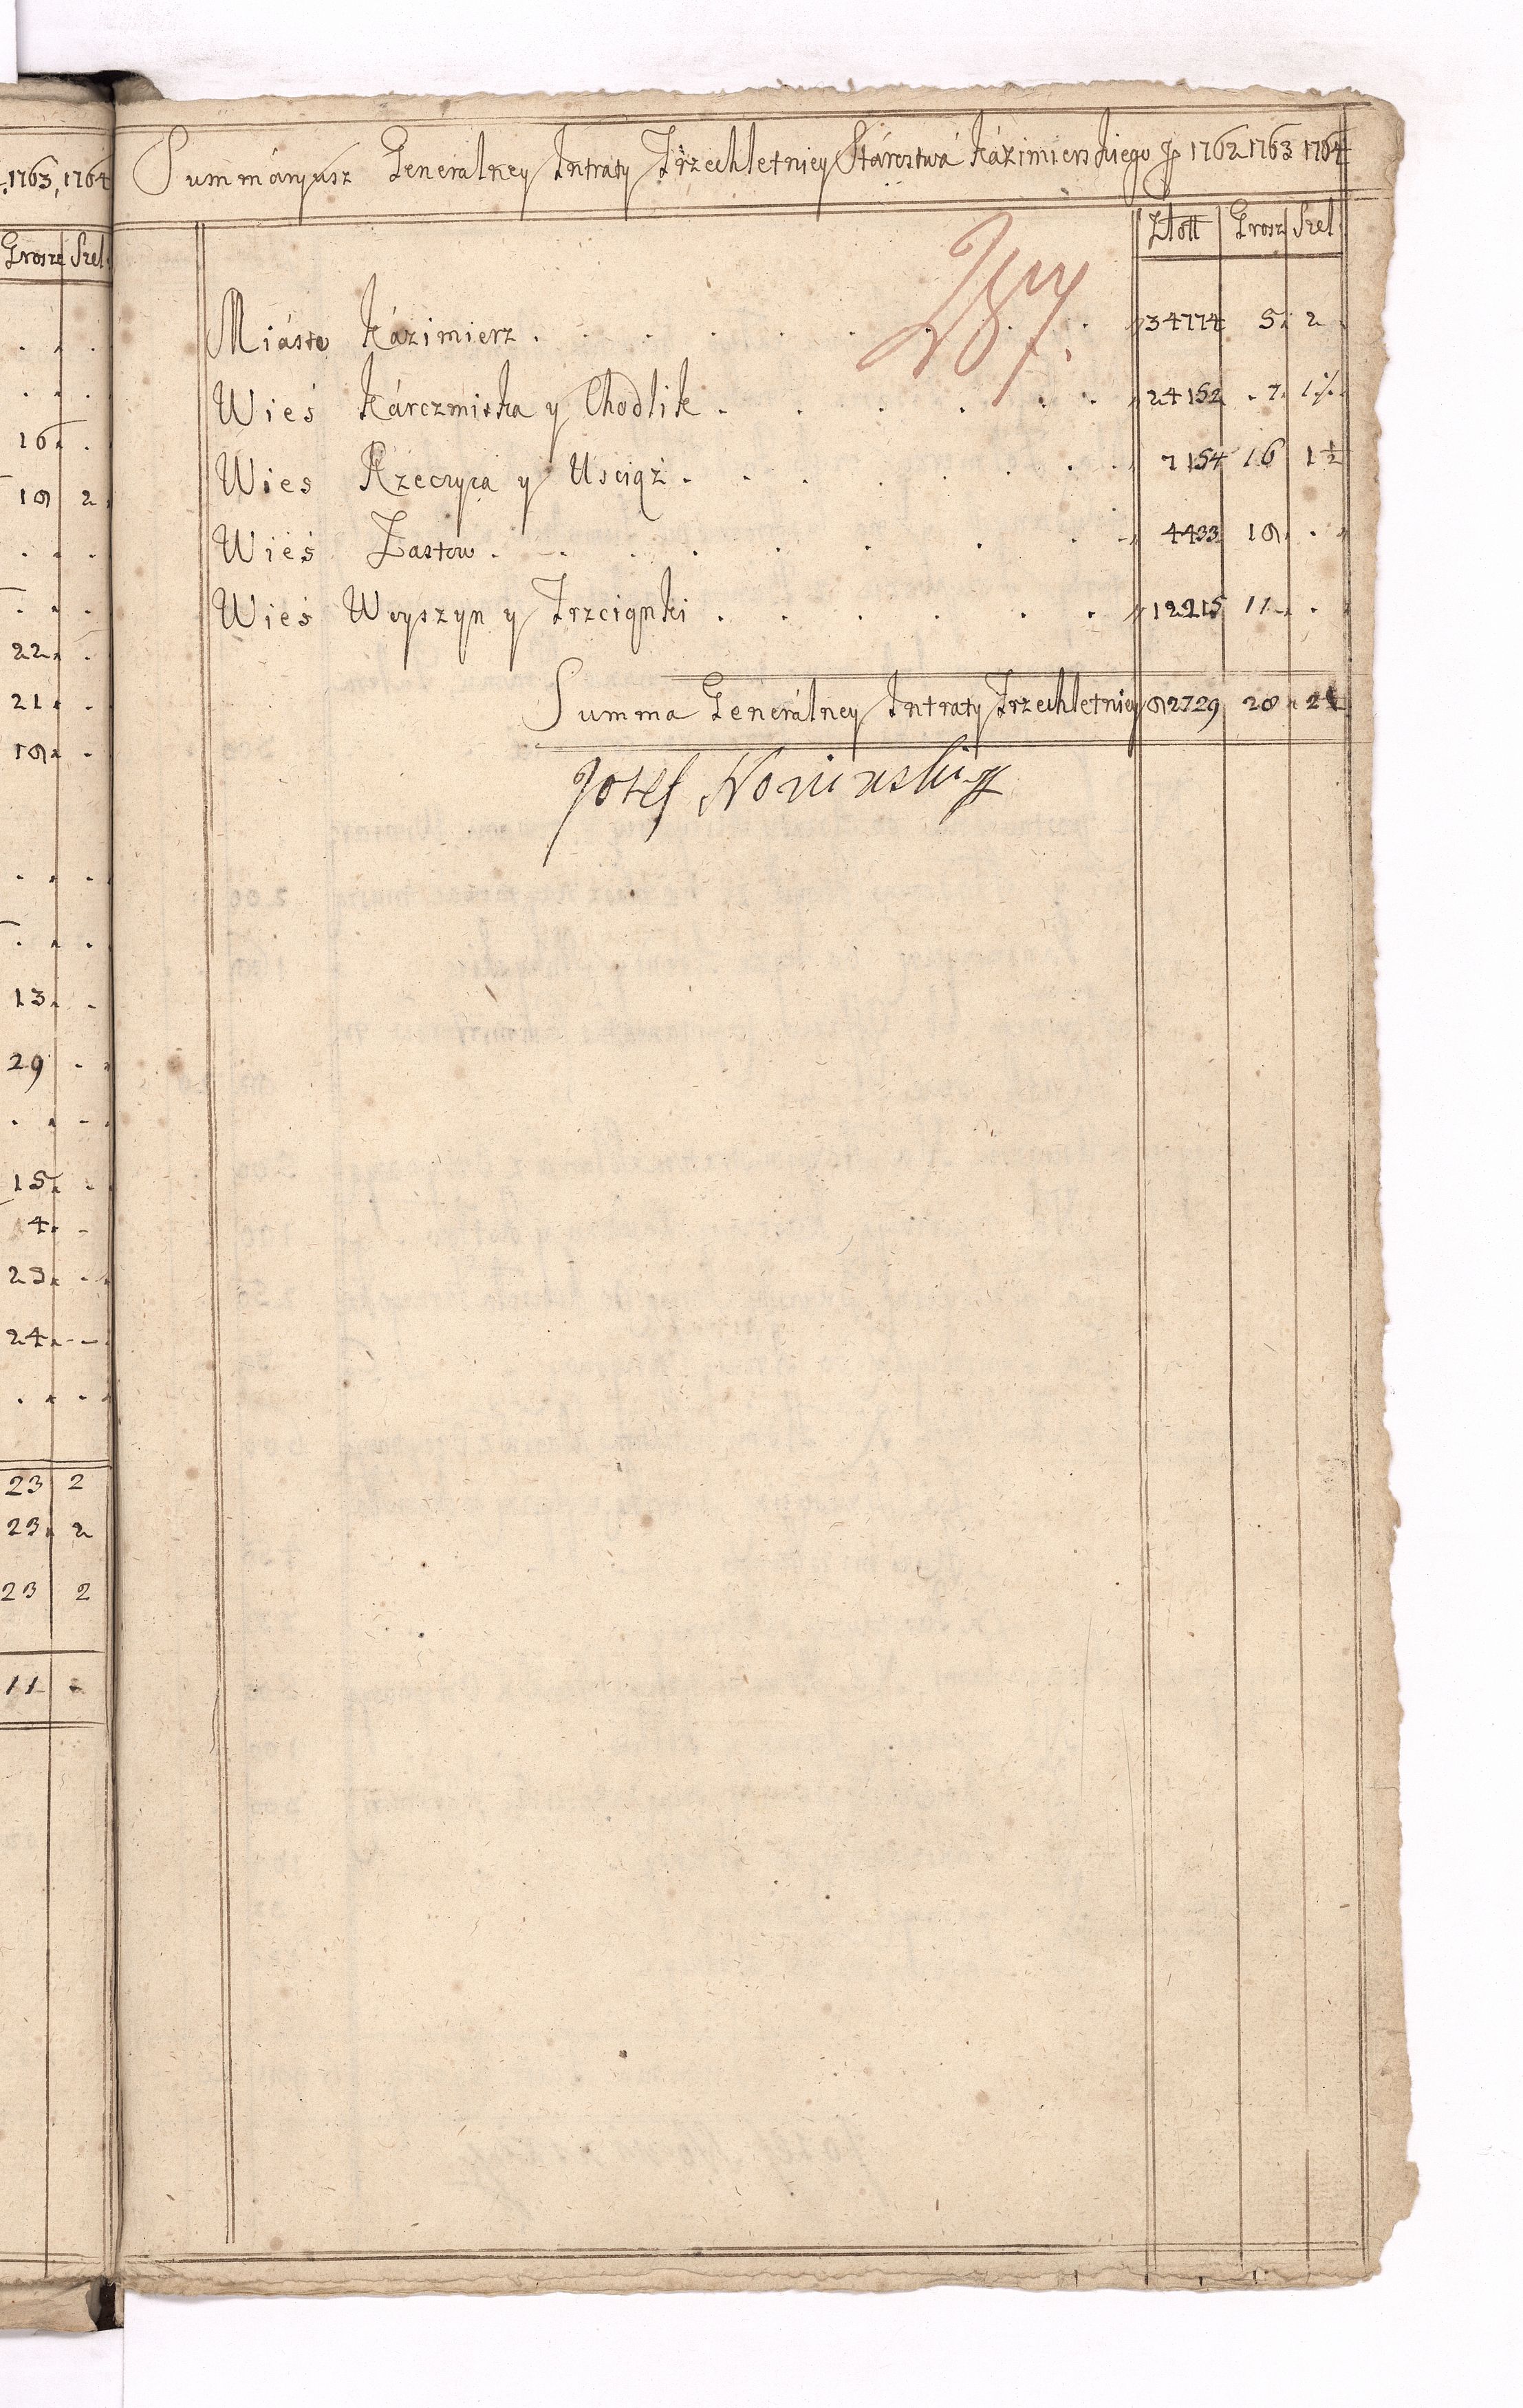 1763, 1764
Grosze Szel
16
18 2
22
21
18
13
29
15
4
23
24
23 2
23 2
23 2
11
Summáryusz Generalney Intraty Trzechletniey Stárostwá Kázimierskiego 1762 1763 1764
Złott Grosz Szel
Miásto Kázimierz 34774 5 2
Wieś Kárczmiska y Chodlik 24152 7 1¾
Wieś Rzeczyca y Usciąż 7154 16 1½
Wieś Zastow 4433 18
Wieś Woyszyn y Trzciąnki 12215 11
Summa Generálney Intraty Trzechletniey 82729 28 2¼
Jozef
287.